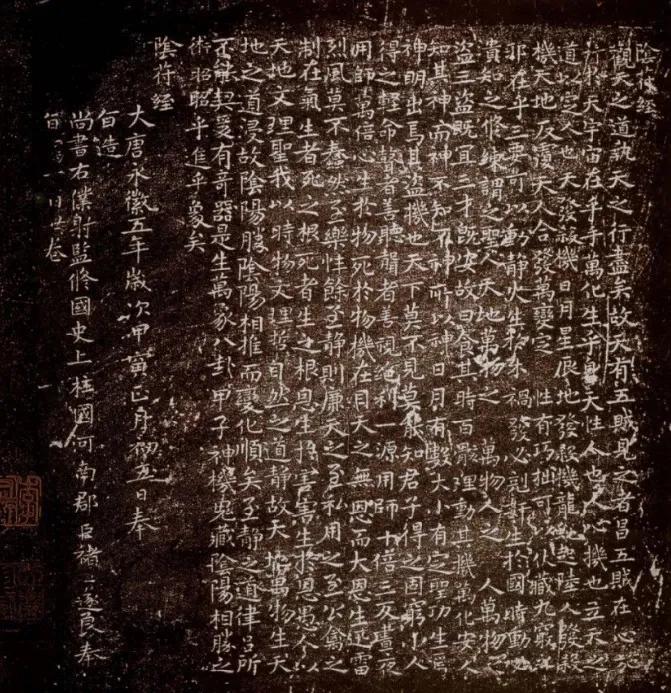 陰符經
觀天之道執天之行盡矣故天有五賊見之者昌五賊在心施
行於天宇宙在乎手萬化生乎身天性人也人心機也立天之
道以定人也天發殺機日月星辰地發殺機龍蛇起陸人發殺
機天地反覆天人合發萬變定 性有巧拙可以伏藏九竅之
邪在乎三要可以動靜火生於木禍發必剋奸生於國時動必
潰知之修練謂之聖人天地萬物之 萬物人之 人萬物之
盜三盜既宜三才既安故曰食其時百骸理動其機萬化安人
知其神而神不知不神所以神日月有數大小有定聖功生焉
神明出焉其盜機也天下莫不見莫能知君子得之固窮小人
得之輕命瞽者善聽聾者善視絕利一源用師十倍三反晝夜
用師萬倍心生於物死於物機在目天之無恩而大恩生迅雷
烈風莫不蠢然至樂性餘至靜則廉天之至私用之至公禽之
制在氣生者死之根死者生之根恩生於害害生於恩愚人以
天地文理聖我以時物文理哲自然之道靜故天地萬物生天
地之道浸故陰陽勝陰陽相推而變化順矣至靜之道律呂所
不能契爰有奇器是生萬象八卦甲子神機鬼藏陰陽相勝之
術昭昭乎進乎象矣
陰符經
大唐永徽五年歲次甲寅正月初五日奉
旨造
尚書右僕射監修國史上柱國河南郡 臣褚遂良奉
旨 一 日 卷